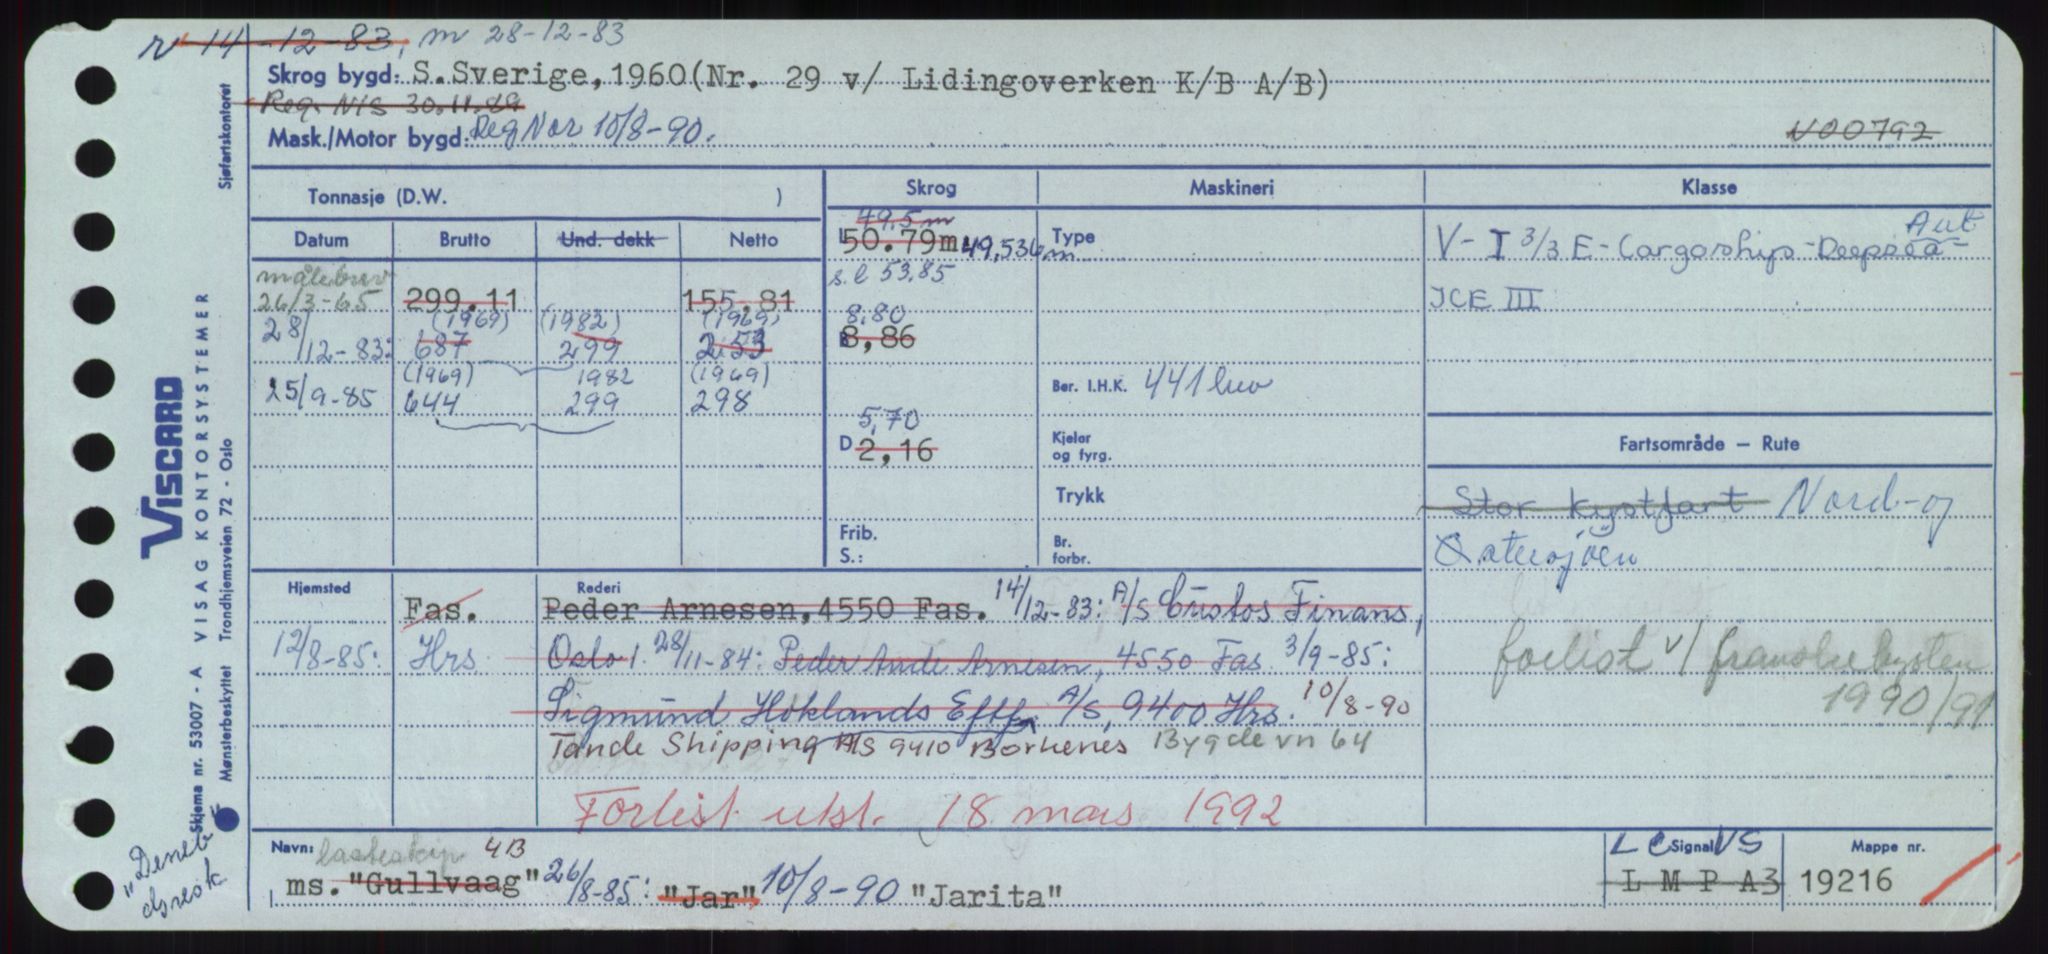 r 14-12-83, m 28-12-83
Skrog bygd: S.Sverige,1960(Nr. 29 v/ Lidingoverken K/B A/B)
Reg. NIS 30.11.89
Mask./Motor bygd: Reg Nor 10/8-90.
N00792
Tonnasje (D.W. )
Skrog Maskineri Klasse
Datum Brutto Und. dekk Netto
målebrev
26/3-65 299.11 155,81
(1969) (1982) (1969)
28/12-83: 687 299 253
(1969) 1982 (1969)
25/9-85 644 299 298
49,5 m
L 50.79m 49,536 m
s.l 53,85
8,80
B 8,86
5,70
D 2,16
Frib.
S.:
Type
Ber. I.H.K. 441 kw
Kjeler
og fyrg.
Trykk
Br.
forbr.
Aut
V-I 3/3 E-Cargoship-Deepsea
ICE III
Fartsområde — Rute
Stor kystfart Nord- og
Østersjøen
forlist v/ franske kysten
1990/91
Hjemsted Rederi
Fas. Peder Arnesen,4550 Fas. 14/12-83: A/S Custos Finans,
12/8-85: Hrs. Oslo 1. 28/11-84: Peder Ande Arnesen, 4550 Fas. 3/9-85:
Sigmund Høklands Eftf. A/S, 9400 Hrs. 10/8-90
Tande Shipping A/S 9410 Borkenes Bygdevn 64
Forlist utsl. 18 mars 1992
Navn: lasteskip 4B
ms."Gullvaag" 26/8-85: "Jar" 10/8-90 "Jarita"
LC Signal VS
L M P A3
Mappe nr.
19216
Sjøfartskontoret
VISCARD
Skjema nr. 53007 - A VISAG KONTORSYSTEMER
Mønsterbeskyttet Trondhjemsveien 72 - Oslo
"Deneb"